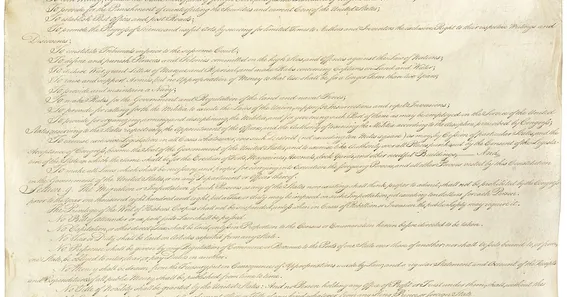 To provide for the Punishment of counterfeiting the Securities and current Coin of the United States;
To establish Post Offices and post Roads;
To promote the Progress of Science and useful Arts, by securing for limited Times to Authors and Inventors the exclusive Right to their respective Writings and
Discoveries;
To constitute Tribunals inferior to the supreme Court;
To define and punish Piracies and Felonies committed on the high Seas, and Offences against the Law of Nations;
To declare War, grant Letters of Marque and Reprisal, and make Rules concerning Captures on Land and Water;
To raise and support Armies, but no Appropriation of Money to that Use shall be for a longer Term than two Years;
To provide and maintain a Navy;
To make Rules for the Government and Regulation of the land and naval Forces;
To provide for calling forth the Militia to execute the Laws of the Union, suppress Insurrections and repel Invasions;
To provide for organizing, arming, and disciplining, the Militia, and for governing such Part of them as may be employed in the Service of the United
States, reserving to the States respectively, the Appointment of the Officers, and the Authority of training the Militia according to the discipline prescribed by Congress;
To exercise exclusive Legislation in all Cases whatsoever, over such District (not exceeding ten Miles square) as may, by Cession of particular States, and the
Acceptance of Congress, become the Seat of the Government of the United States, and to exercise like Authority over all Places purchased by the Consent of the Legisla
ture of the State in which the Same shall be, for the Erection of Forts, Magazines, Arsenals, dock-Yards, and other needful Buildings;—And
To make all Laws which shall be necessary and proper for carrying into Execution the foregoing Powers, and all other Powers vested by this Constitution
in the Government of the United States, or in any Department or Officer thereof.
Section. 9. The Migration or Importation of such Persons as any of the States now existing shall think proper to admit, shall not be prohibited by the Congress
prior to the Year one thousand eight hundred and eight, but a Tax or duty may be imposed on such Importation, not exceeding ten dollars for each Person.
The Privilege of the Writ of Habeas Corpus shall not be suspended, unless when in Cases of Rebellion or Invasion the public Safety may require it.
No Bill of Attainder or ex post facto Law shall be passed.
No Capitation, or other direct, Tax shall be laid, unless in Proportion to the Census or Enumeration herein before directed to be taken.
No Tax or Duty shall be laid on Articles exported from any State.
No Preference shall be given by any Regulation of Commerce or Revenue to the Ports of one State over those of another: nor shall Vessels bound to, or from,
one State, be obliged to enter, clear, or pay Duties in another.
No Money shall be drawn from the Treasury, but in Consequence of Appropriations made by Law; and a regular Statement and Account of the Receipts
and Expenditures of all public Money shall be published from time to time.
No Title of Nobility shall be granted by the United States: And no Person holding any Office of Profit or Trust under them, shall, without the